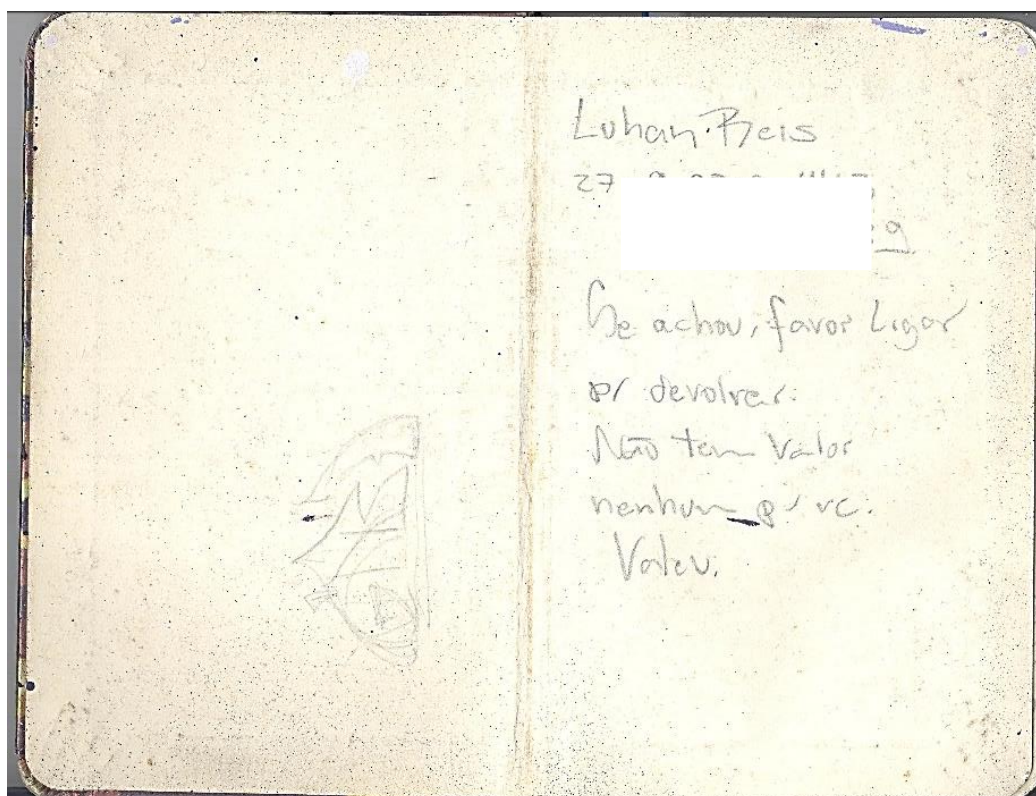 Luhan Reis
27
Se achou, favor Ligar
p/ devolver.
Não tem Valor
nenhum p/ vc.
Valeu.